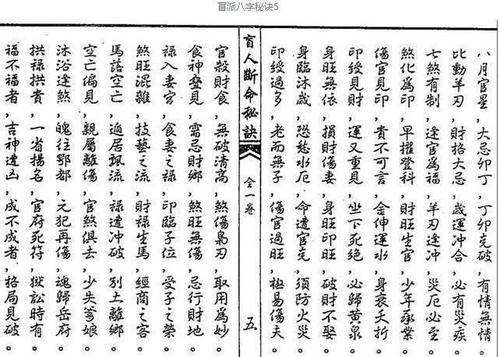 盲派八字秘诀5
八月官星，大忌卯丁，丁卯克破，有情無情。
比動羊刃，財格大忌，歲運冲合，必有災疾。
七煞有制，逢官為福，羊刃逢冲，災厄必至。
煞化為印，早擢登科，財旺生官，少年承業。
傷官見印，貴不可言，金伸運水，身衰夭折。
印綬見財，運又重見，坐下死絶，必歸黃泉。
身旺無依，損財傷妻，印旺，破財不娶。
身臨沐歲，恐水厄，命遭官克，須防火災。
印綬過多，老而無子，傷官過旺，極易傷夫。
盲人斷命秘訣 全一卷 五
官殺財食，無破清高，煞傷梟刃，取用為妙。
食神叠見，需忌財鄉，煞旺無傷，忌行財地。
祿入妻宮，食妻之祿，印臨子位，受子之榮。
煞旺混雜，技藝之流，財祿坐馬，經商之客。
馬落空亡，遁居飄流，祿遭冲破，別土離鄉。
空亡偏見，親屬離傷，官煞俱去，少失爹娘。
沐浴逢煞，魄往鄷都，元犯再傷，魂歸岳府。
拱祿拱貴，一省揚名，官府死符，獄訟時有。
福不福者，吉神遭凶，成不成者，格局見破。